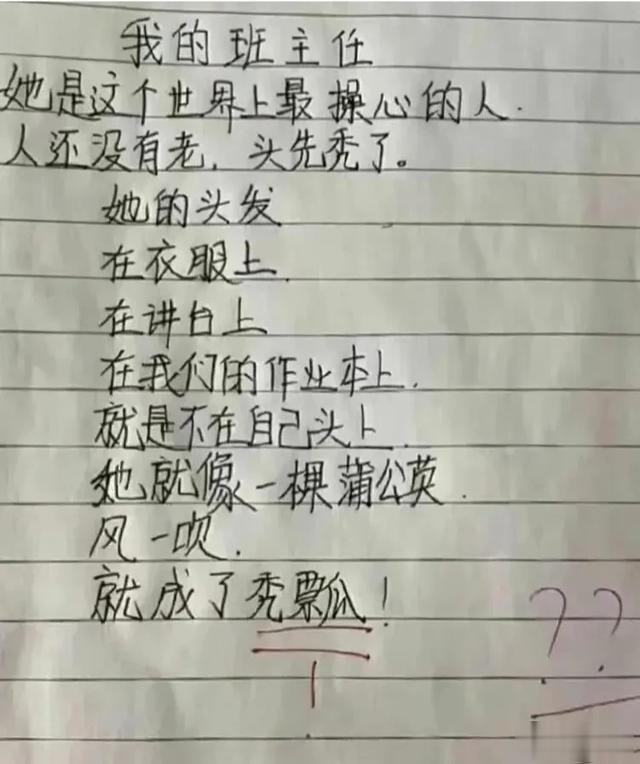 我的班主任
她是这个世界上最操心的人.
人还没有老，头先秃了。
她的头发
在衣服上
在讲台上
在我们的作业本上.
就是不在自己头上.
她就像一棵蒲公英.
风一吹.
就成了秃瓢瓜！
??